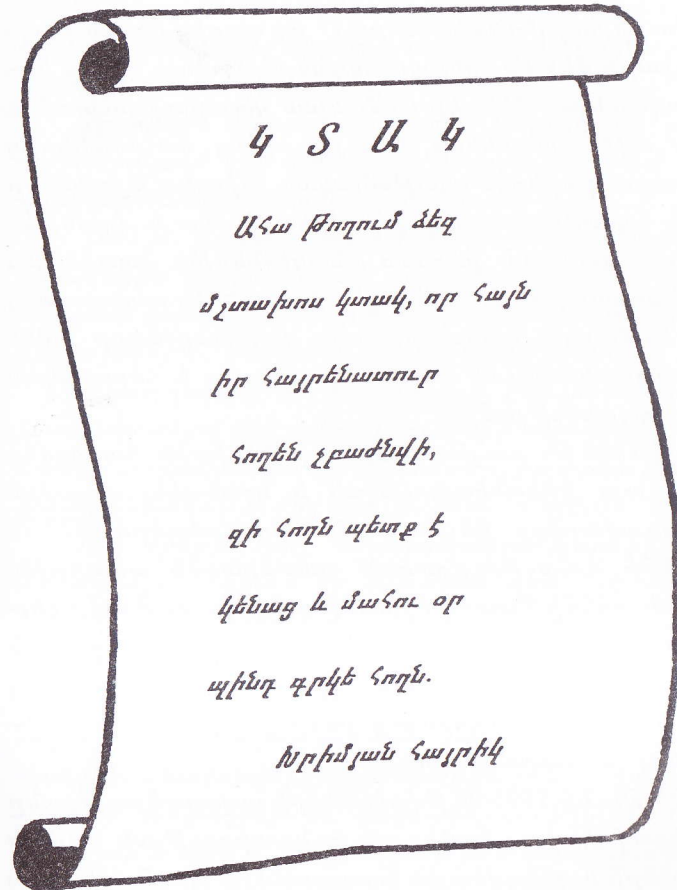 Կ Տ Ա Կ
Ահա թողում ձեզ
մշտախոս կտակ, որ հայն
իր հայրենատուր
հողեն չբաժնվի,
զի հողն պետք է
կենաց և մահու օր
պինդ գրկե հողն.
Խրիմյան հայրիկ